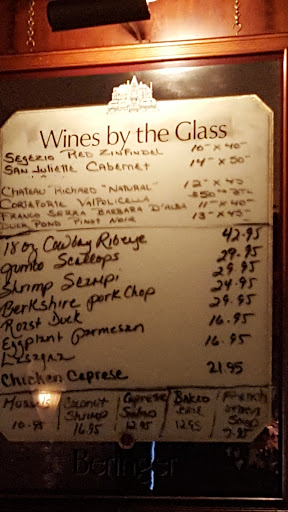 Wines by the Glass
Segezio Red Zinfindel 10" x 40"
San Juliette Cabernet 14" x 50"
Chateau "Richard "Natural" 12" x 45
Cortaforte Valpolicella $50
Franco Serra "Barbara D'Alba 11" x 40"
Duck Pond Pinot Noir 13" x 45"
18 oz Cowboy Ribeye 42.95
Jumbo Scallops 29.95
Shrimp Scampi 29.95
Berkshire pork Chop 24.95
Roast Duck 29.95
Eggplant parmesan 16.95
Lasagna 16.95
Chicken Caprese 21.95
Mussels 10.95
Coconut Shrimp 16.95
Caprese Salad 12.95
Baked 12.95
French Onion Soup 7.95
Beringer